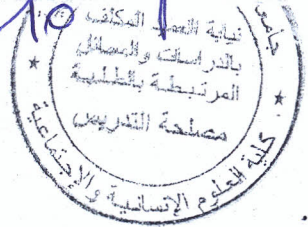 10
نيابة العميد المكلف
بالدراسات والمسائل
المرتبطة بالطلبة
مصلحة التدريس
كلية العلوم الإنسانية والإجتماعية